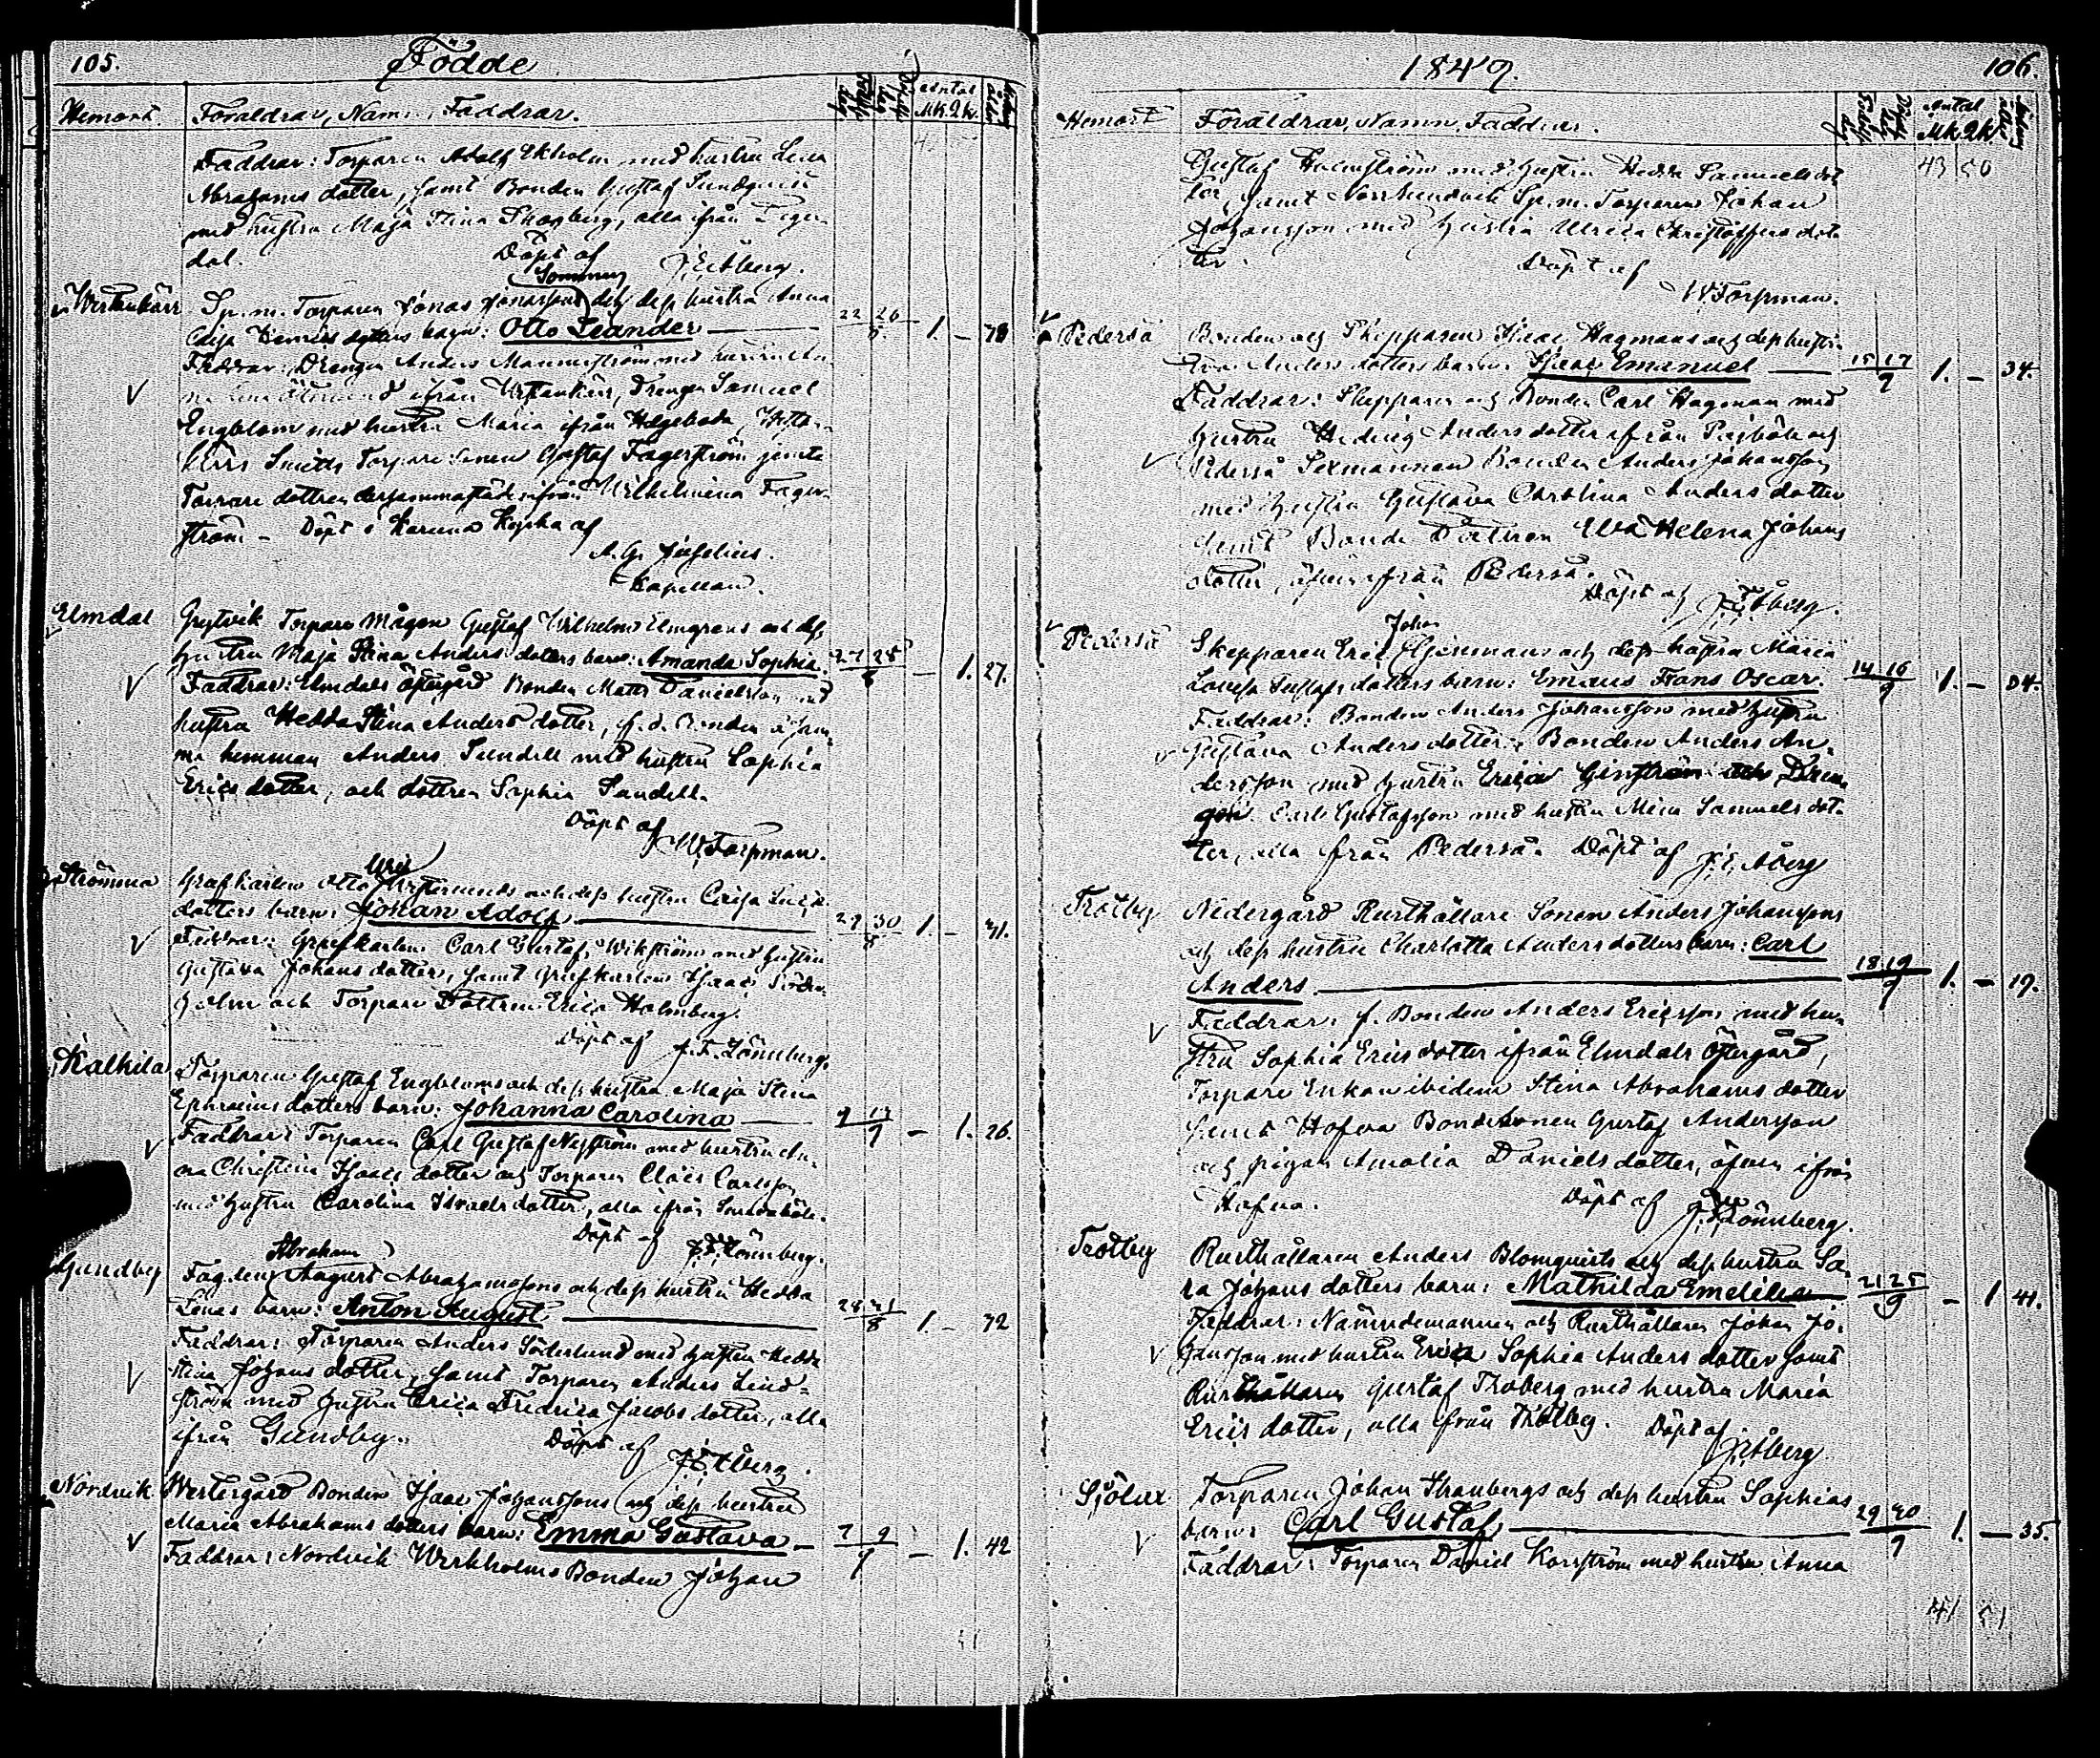 105. Födde
Hemort. Föräldrar, Namn, Faddrar. Antal Mk. Qk.
Faddrar: Torparen Adolf Ekholm med hustru Lena
Abrahams dotter, samt Bonden Gustaf Sundqvist
med hustru Maja Stina Skogberg, alla ifrån Teger
dal. Döpt af J. E. Åberg.
Sp. m. Torparen Jonas Jonassons och dess hustru Anna
Caisa Henrics dotters barn: Otto Leander 22 26 1. –
Faddrar: Drengen Anders Mannerström med hustru An
ifrån Drengen Samuel
Engblom med hustru Maria ifrån
Smeds Torpare Sonen Gustaf Fagerström jemte
Torpare dottren dersammastädes ifrån Wilhelmina Fager
ström – Döpt i Karuna Kyrka af
A. G.
Kapellan.
Elmdal Torpare Mågen Gustaf Wilhelm Elmgrens och dess
hustru Maja Stina Anders dotters barn: Amanda Sophia. – 1. 27.
Faddrar: Elmdals Östergård Bonden Matts Danielsson med
hustru Hedda Stina Anders dotter, f. d. Bonden å sam
ma hemman Anders Sundell med hustru Sophia
Erics dotter, och dottren Sophia Sundell.
Döpt af
W. Torpman.
Strömma Grafkarlen Otto och dess hustru Caisa
dotters barn: Johan Adolf 29 30 1. – 41.
Faddrar: Grafkarlen Carl Gustaf Wikström med hustru
Gustava Johans dotter, samt Grafkarlen Isaac Söder
holm och Torpare Dottren Erica Holmberg.
Döpt af J. F. Lönnberg.
Kalkila Torparen Gustaf Engbloms och dess hustru Maja Stina
Ephraims dotters barn: Johanna Carolina 9 – 1. 26.
Faddrar: Torparen Carl Gustaf Nyström med hustru An
na Christina Isaacs dotter och Torparen Claës Carlsson
med hustru Carolina Israels dotter, alla ifrån
Döpt af J. F. Lönnberg.
Abraham
Gundby August Abrahamssons och dess hustru Hedda
Lenas barn: Anton August 8 1. –
Faddrar: Torparen Anders Söderlund med hustru Hedda
Stina Johans dotter, samt Torparen Anders Lind=
ström med hustru Erica Fredrica Jacobs dotter, alla
ifrån Gundby. Döpt af
J. E. Åberg.
Nordvik Westergård Bonden Isaac Johanssons och dess hustru
Maria Abrahams dotters barn: Emma Gustava – 7 9 9 – 1. 42
Faddrar: Nordvik Werkholms Bonden Johan
1849. 106.
Hemort Föräldrar, Namn, Faddrar. Antal Mk. Qk.
Gustaf Holmström med hustru Hedda Samuels dot
ter, samt Sp. m. Torparen Johan
Johansson med hustru Ulrica Christoffers dot
ter. Döpt af
W. Torpman.
Pederså Bonden och Skepparen Isaac Hagmans och dess hustru
Eva Anders dotters barn: Isaac Emanuel 15 17 9 1. – 34.
Faddrar: Skepparen och Bonden Carl Hagman med
hustru Hedvig Anders dotter ifrån och
Pederså Sexmannen Bonden Anders Johansson
med hustru Gustava Carolina Anders dotter
samt Bonde Dottren Eva Helena Johans
dotter, äfven ifrån Pederså.
Döpt af J. E. Åberg.
Johan
Pederså Skepparen Eric och dess hustru Maria
Lovisa Gustafs dotters barn: Emaus Frans Oscar. 14 16 9 1. – 34.
Faddrar: Bonden Anders Johansson med hustru
Gustava Anders dotter, Bonden Anders An
dersson med hustru Erica Ginström och Dren
gen Carl Gustafsson med hustru Mina Samuels dot
ter, alla ifrån Pederså. Döpt af J. E. Åberg
Trotby Nedergård Rusthållare Sonen Anders Johanssons
och dess hustru Charlotta Anders dotters barn: Carl
Anders. 18 19 9 1. – 19.
Faddrar: f. Bonden Anders Ericsson med hu
stru Sophia Erics dotter ifrån Elmdals Östergård,
Torpare Enkan ibidem Stina Abrahams dotter
samt Hofva Bondesonen Gustaf Andersson
och pigan Amalia Daniels dotter, äfven ifrån
Hofva. Döpt af J. F. Lönnberg.
Trotby Rusthållaren Anders Blomqvists och dess hustru Sa
ra Johans dotters barn: Mathilda Emelia 21 25 9 – 1 41.
Faddrar: Nämndemannen och Rusthållaren Johan Jo
hansson med hustru Erica Sophia Anders dotter samt
Rusthållaren Gustaf Troberg med hustru Maria
Erics dotter, alla ifrån Trotby. Döpt af
J. E. Åberg
Sjölax Torparen Johan Stranbergs och dess hustru Sophias
barn: Carl Gustaf 29 30 9 1. – 35.
Faddrar: Torparen Daniel Korsström med hustru Anna